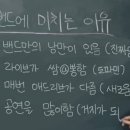 밴드에 미치는 이유
밴드만의 낭만이 있음 (진짜
라이브가
매번 애드리브가 다름 (새로움
공연을 많이함 (거지가 되